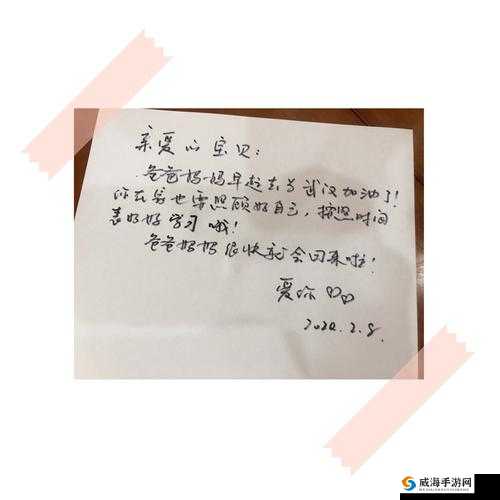 亲爱的宝贝：
爸爸妈妈早起去为武汉加油了！
你在家也要照顾好自己，按照时间
表好好学习哦！
爸爸妈妈很快就会回来啦！
爱你♡♡
2020.2.8.
威海手游网